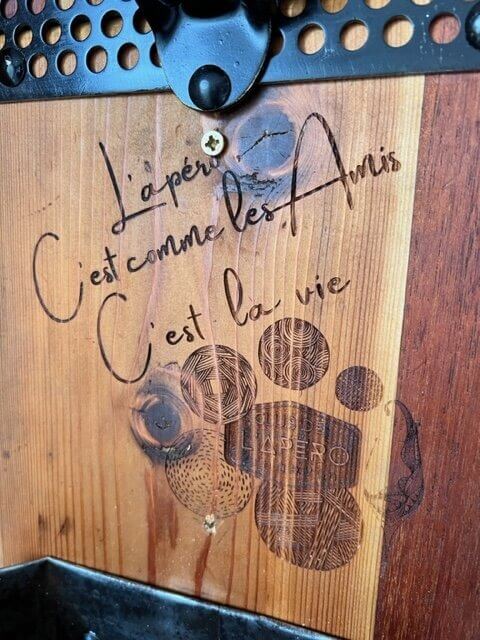 L'apéro
C'est comme les Amis
C'est la vie
L'APÉRO